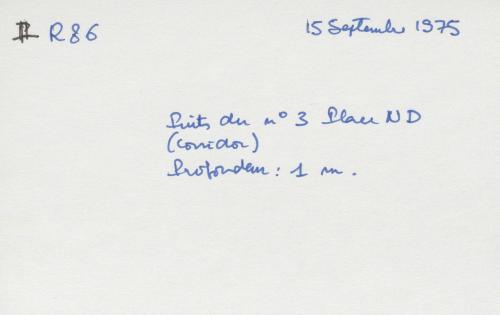 R 86
15 Septembre 1975
Puits du n° 3 Place ND
(corridor)
Profondeur : 1 m.